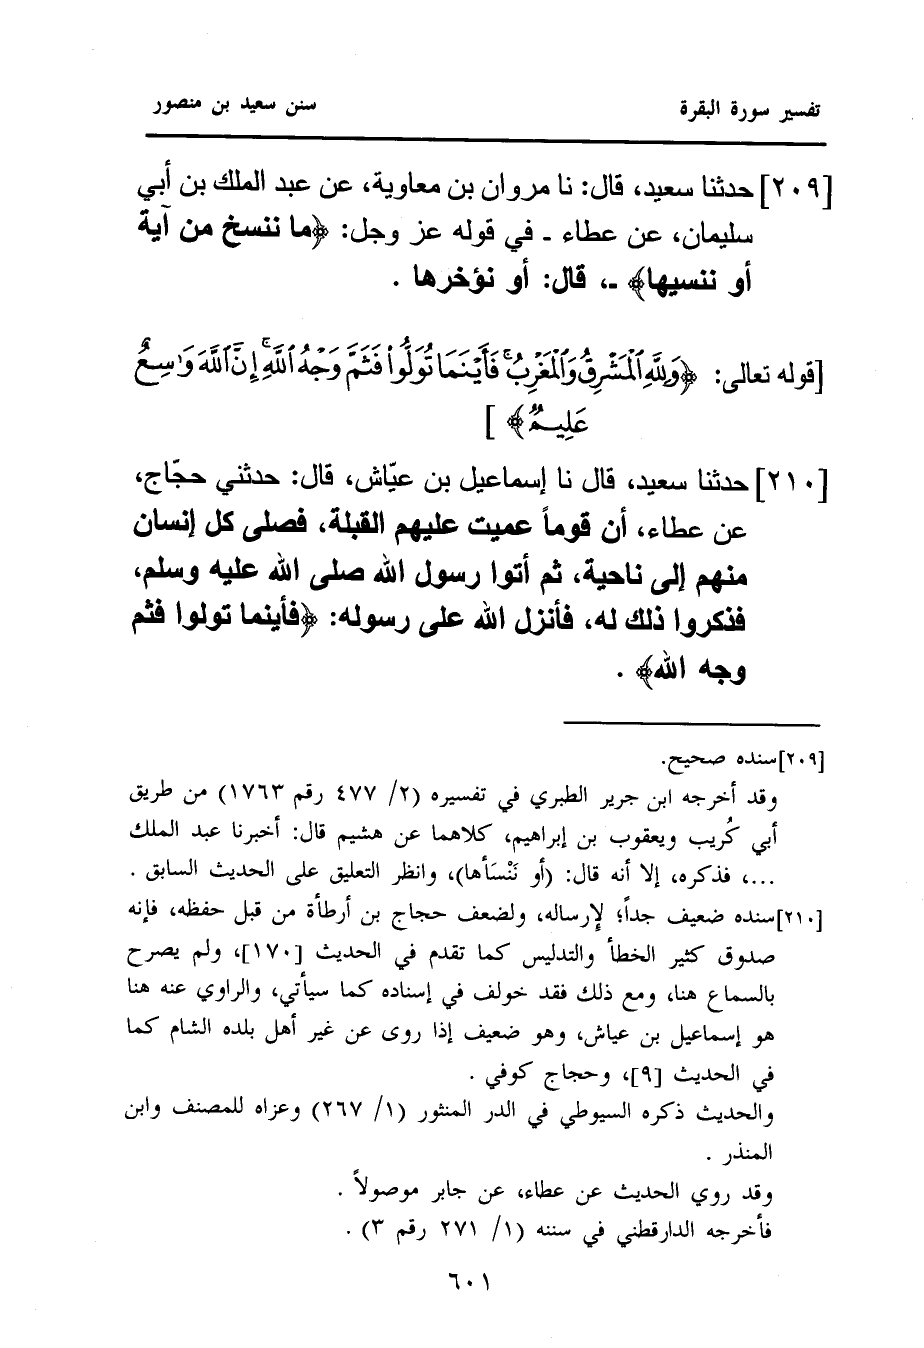 تفسير سورة البقرة سنن سعيد بن منصور
[٢٠٩] حدثنا سعيد، قال: نا مروان بن معاوية، عن عبد الملك بن أبي
سليمان، عن عطاء ـ في قوله عز وجل: ﴿ما ننسخ من آية
أو ننسيها﴾ ـ، قال: أو نؤخرها .
[قوله تعالى: ﴿وَلِلَّهِ ٱلْمَشْرِقُ وَٱلْمَغْرِبُ ۚ فَأَيْنَمَا تُوَلُّوا۟ فَثَمَّ وَجْهُ ٱللَّهِ ۚ إِنَّ ٱللَّهَ وَٰسِعٌ
عَلِيمٌ﴾ ]
[٢١٠] حدثنا سعيد، قال نا إسماعيل بن عيّاش، قال: حدثني حجّاج،
عن عطاء، أن قوماً عميت عليهم القبلة، فصلى كل إنسان
منهم إلى ناحية، ثم أتوا رسول الله صلى الله عليه وسلم،
فذكروا ذلك له، فأنزل الله على رسوله: ﴿فأينما تولوا فثم
وجه الله﴾ .
[٢٠٩] سنده صحيح.
وقد أخرجه ابن جرير الطبري في تفسيره (٢/ ٤٧٧ رقم ١٧٦٣) من طريق
أبي كُريب ويعقوب بن إبراهيم، كلاهما عن هشيم قال: أخبرنا عبد الملك
...، فذكره، إلا أنه قال: (أو نَنْسَأها)، وانظر التعليق على الحديث السابق .
[٢١٠] سنده ضعيف جداً؛ لإرساله، ولضعف حجاج بن أرطأة من قبل حفظه، فإنه
صدوق كثير الخطأ والتدليس كما تقدم في الحديث [١٧٠]، ولم يصرح
بالسماع هنا، ومع ذلك فقد خولف في إسناده كما سيأتي، والراوي عنه هنا
هو إسماعيل بن عياش، وهو ضعيف إذا روى عن غير أهل بلده الشام كما
في الحديث [٩]، وحجاج كوفي .
والحديث ذكره السيوطي في الدر المنثور (١/ ٢٦٧) وعزاه للمصنف وابن
المنذر .
وقد روي الحديث عن عطاء، عن جابر موصولاً .
فأخرجه الدارقطني في سننه (١/ ٢٧١ رقم ٣) .
٦٠١